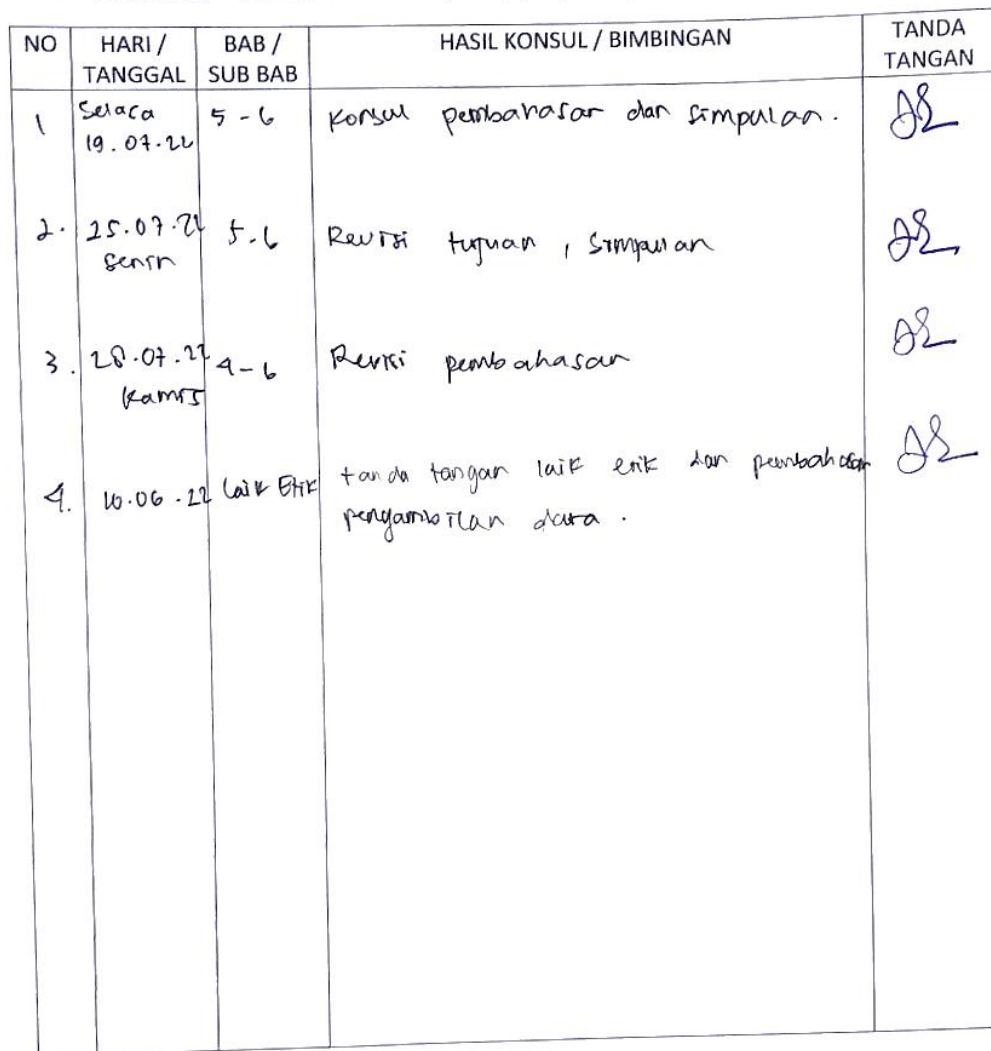 NO HARI / TANGGAL BAB / SUB BAB HASIL KONSUL / BIMBINGAN TANDA TANGAN
1 Selasa 5 - 6 Konsul pembahasan dan simpulan.
19.07.22
2. 25.07.22 5-6 Revisi tujuan, simpulan
Senin
3. 28.07.22 4-6 Revisi pembahasan
Kamis
4. 10.06.22 Laik Etik tanda tangan laik etik dan pembahasan
pengambilan data.